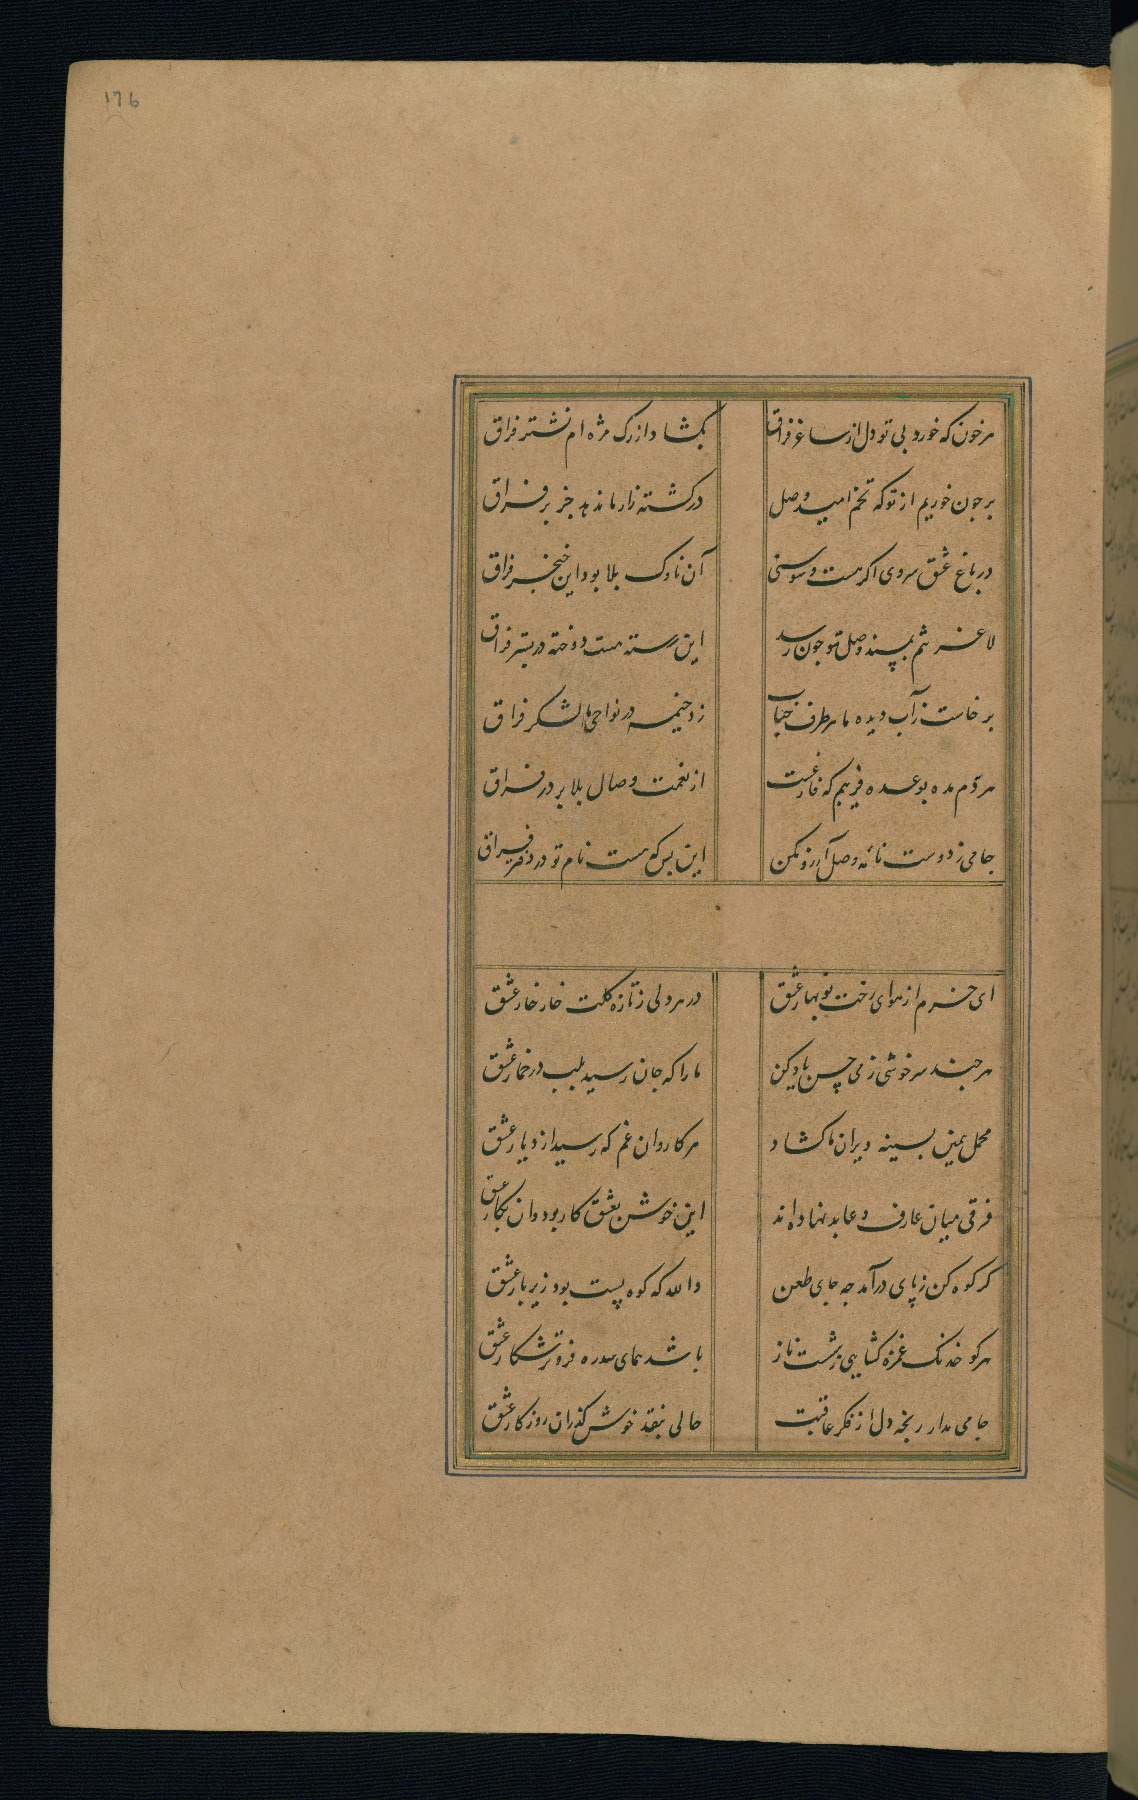 176
هر خون که خورد بی تو دل از ساغر فراق بکشاد از رک مژه ام نشتر فراق
بر چون خوریم از تو که تخم امید وصل در کشته زار ما ندهد جز بر فراق
در باغ عشق سروی اکر هست و سوسنی آن ناوک بلا بود این خنجر فراق
لاغر شم وصل تو چون رسد این رسته هست دوخته در بستر فراق
بر خاست ز آب دیده ما هر طرف حباب زد خیمه در نواحی ما لشکر فراق
هر دم مده بوعده فریبم که فارغست از نعمت وصال بلا پرور فراق
جامی ز دوست نامه وصل آرزو مکن این بس که هست نام تو در دفتر فراق
ای خرم از هوای رخت نوبهار عشق در هر دلی ز تازه کلت خار خار عشق
هر چند سر خوشی ز می حسن یاد کن ما را که جان رسید بلب در خمار عشق
محمل همین بسینه ویران ما کشاد هر کاروان غم که رسید از دیار عشق
فرقی میان عارف و عابد نهاده اند این خوش بعشق کار بود وان بکار عشق
کر کوه کن ز پای در آمد چه جای طعن والله که کوه پست بود زیر بار عشق
هر کو خدنک غمزه کشایی ز شست ناز باشد همای سدره فروتر شکار عشق
جامی مدار رنجه دل از فکر عاقبت حالی بنقد خوش کذران روزکار عشق